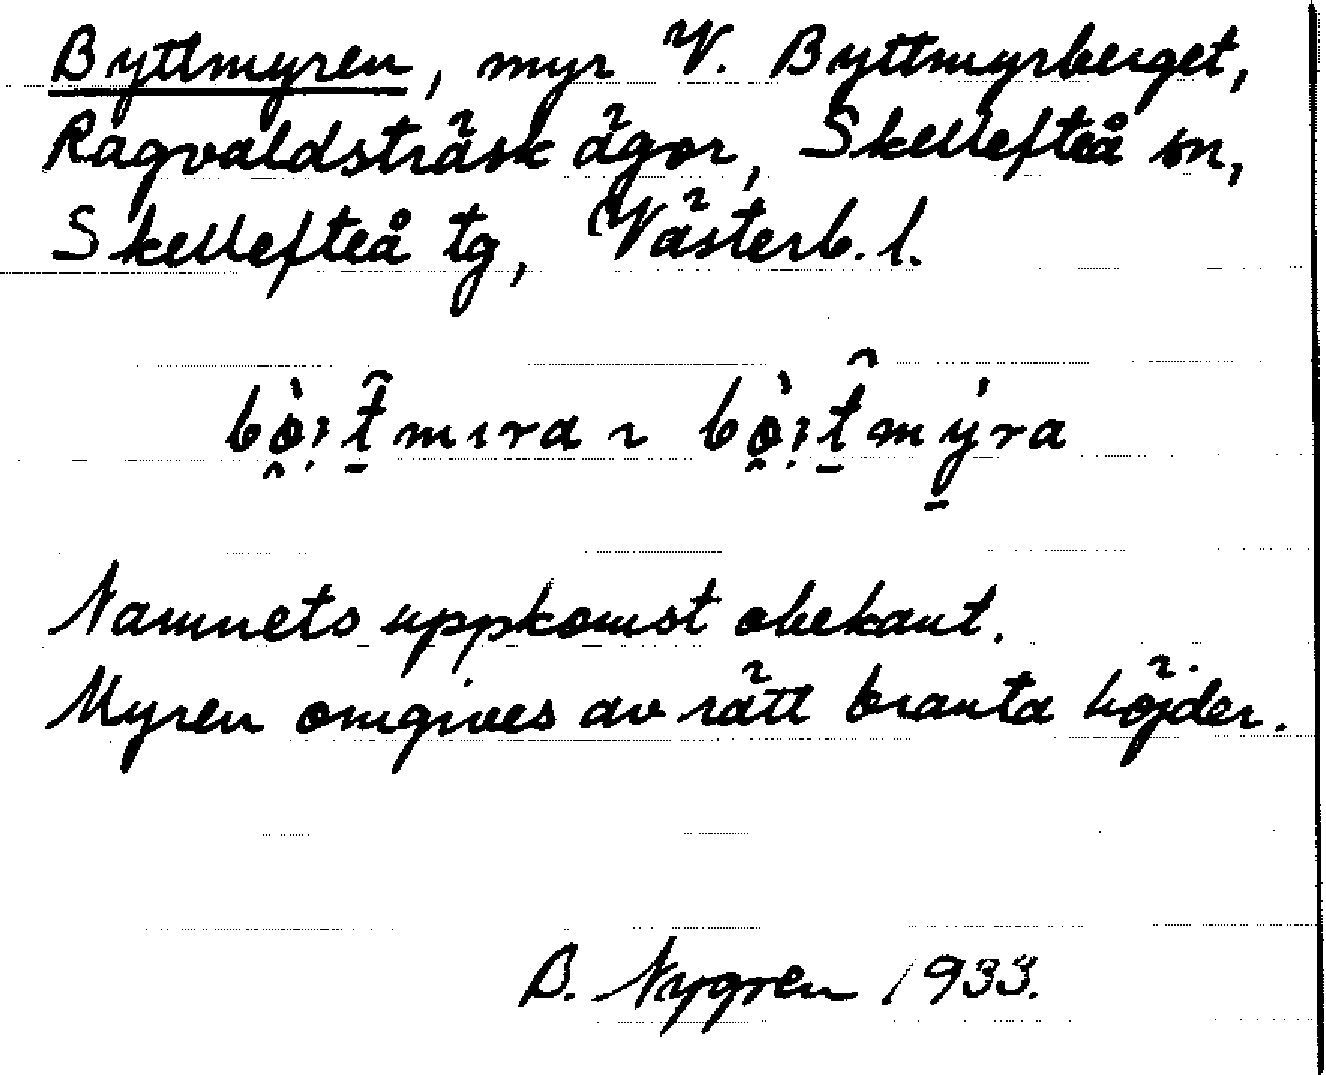 Byttmyren, myr V. Byttmyrberget,
Ragvaldsträsk ägor, Skellefteå sn,
Skellefteå tg, Västerb. l.
Namnets uppkomst obekant.
Myren omgives av rätt branta höjder.
B. Nygren 1933.